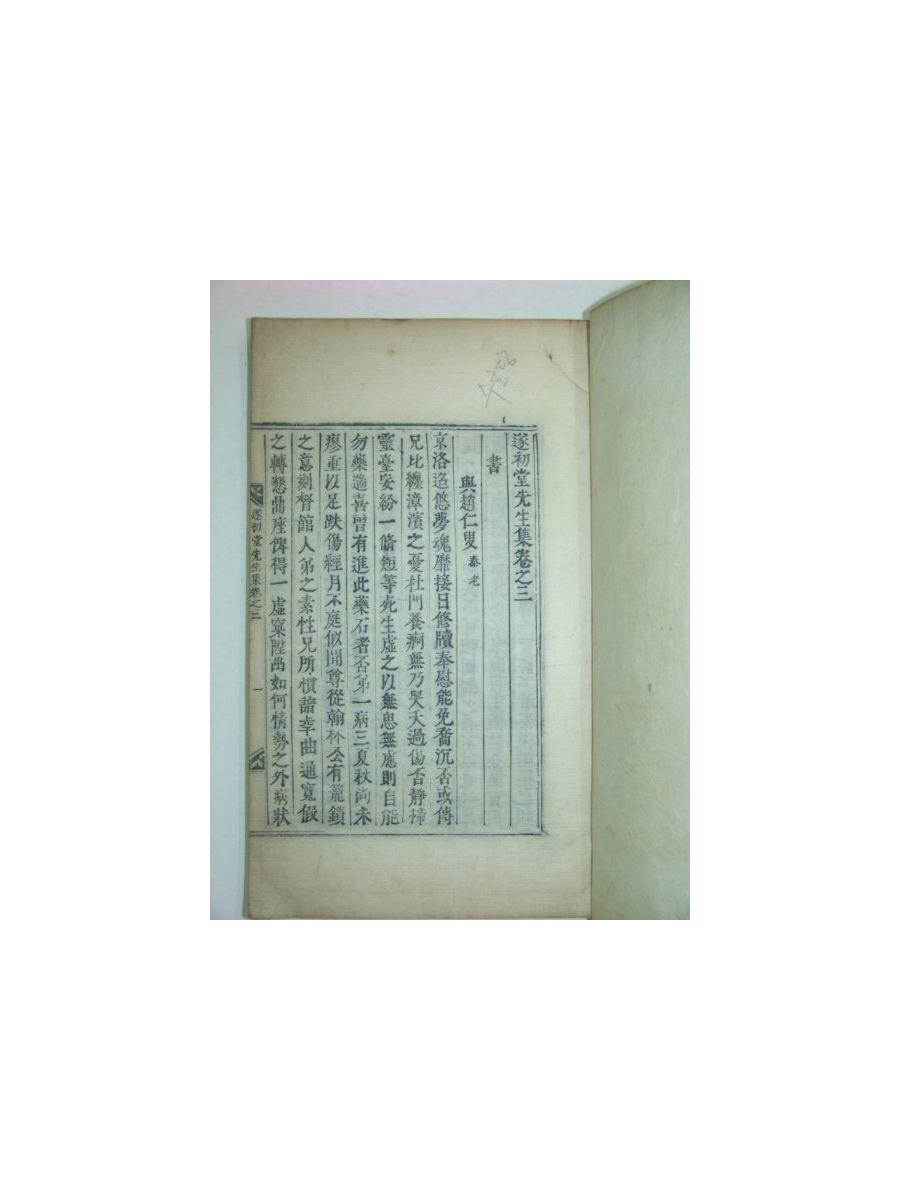 遂初堂先生集卷之三
書
與趙仁叟 泰老
京洛迢悠夢魂靡接日修牘奉慰能免喬沉否或傳
兄比纏漳濱之憂杜門養痾無乃哭夭過傷否靜得
靈臺妥紛一脩短等死生虛之以無思無慮則自能
勿藥遄喜曾有進此藥石者否弟一病三夏秋尚未
瘳重以足趺傷經月不庭似聞尊從翰林公有蘢鎖
之意刻督館人弟之素性兄所慣諳幸曲通寬假
之轉懇鼎座俾得一虛窠陞出如何情勢之外病狀
遂初堂先生集卷之三 一